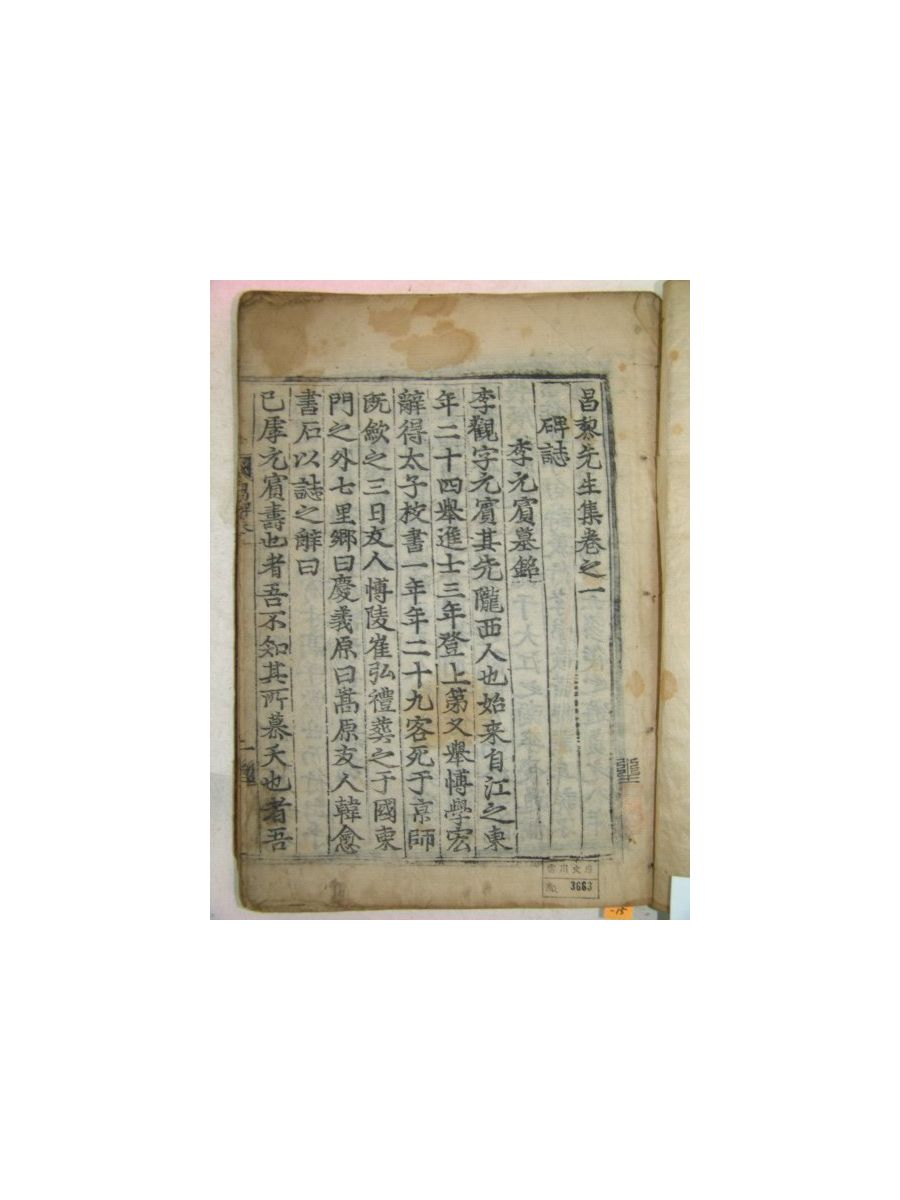 昌黎先生集卷之一
碑誌
李元賓墓銘
李觀字元賓其先隴西人也始来自江之東
年二十四舉進士三年登上第又舉博學宏
辭得太子校書一年年二十九客死于京師
既斂之三日友人博陵崔弘禮葬之于國東
門之外七里鄉曰慶義原曰嵩原友人韓愈
書石以誌之辭曰
已虖元賓壽也者吾不知其所慕夭也者吾
3663
-15